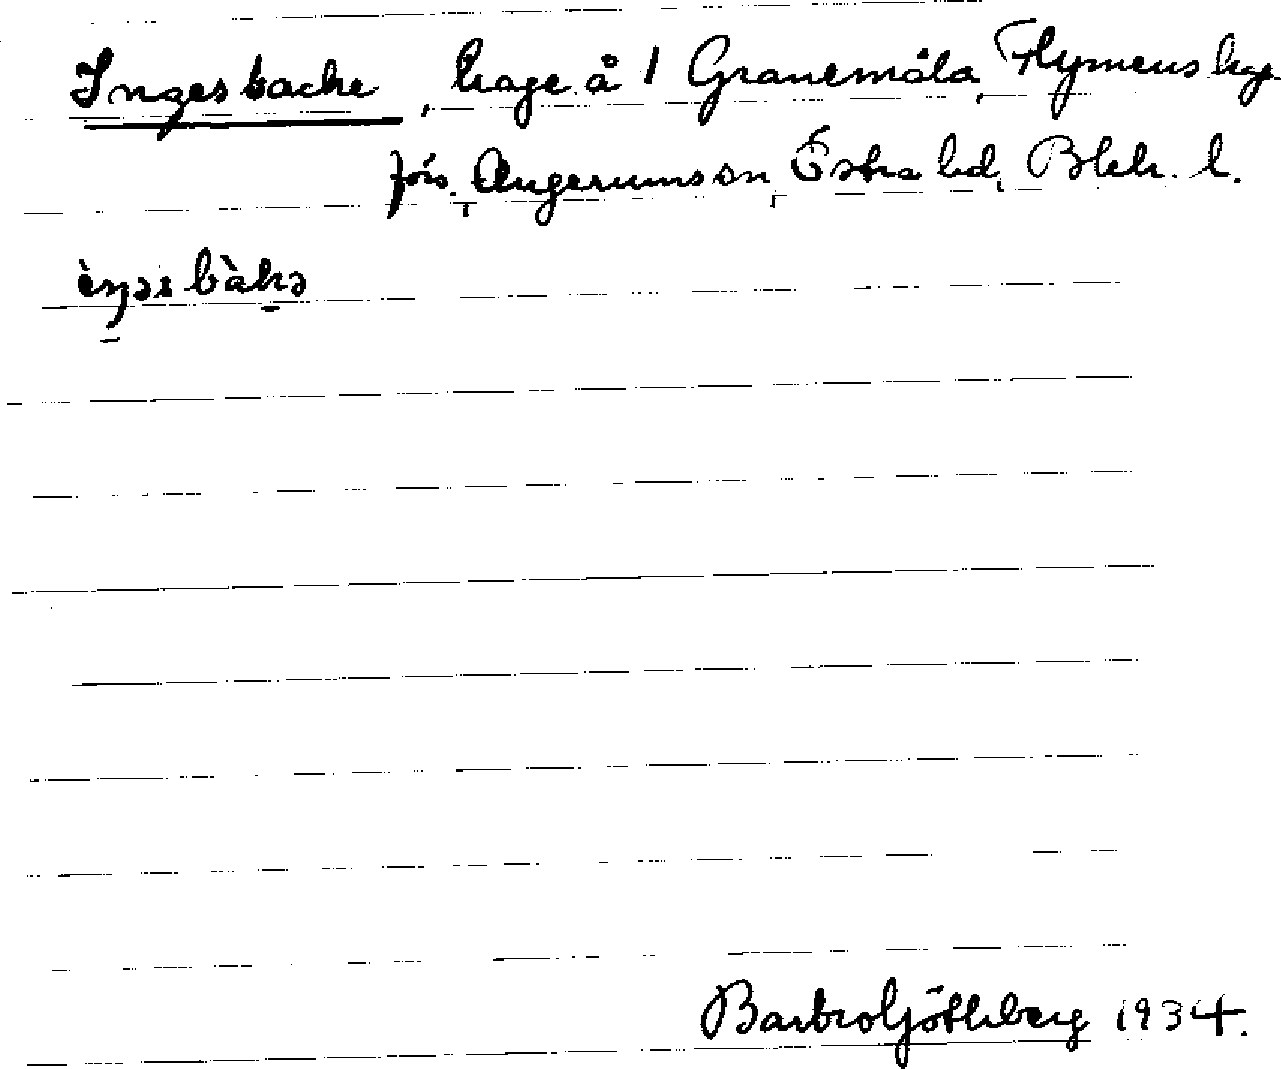 Ingesbacke, hage å 1 Granemåla, Flymens kge
förs. Augerums sn, Östra hd, Blek. l.
èŋəsbàkə
Barbro Götlberg 1934.